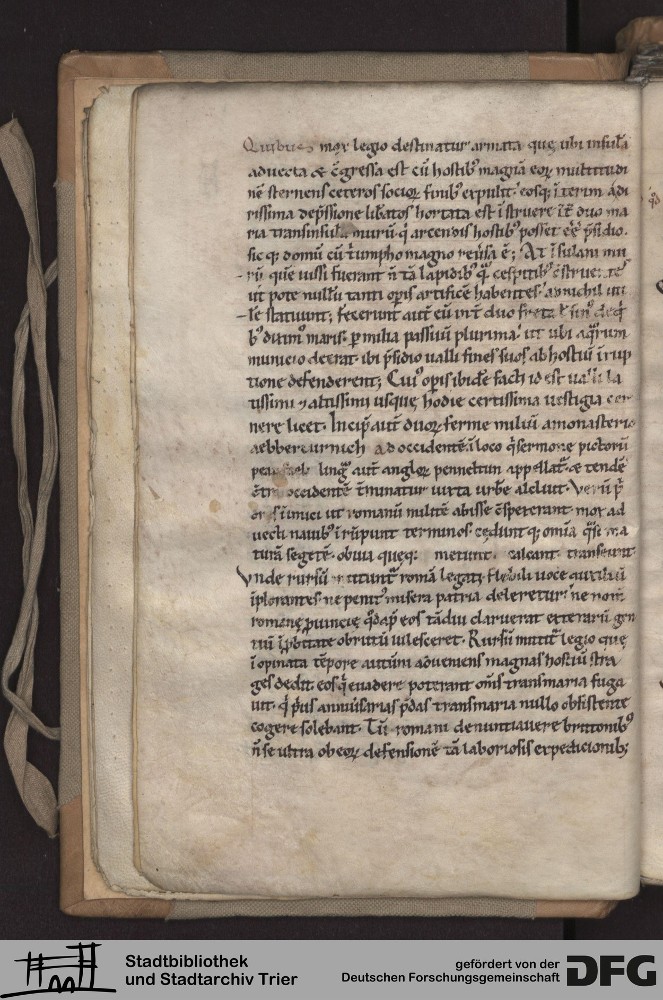 Quibus mox legio destinatur armata que ubi insulā
aduecta & c̄gressa est cū hostib; magnā eoꝝ multitudi
nē sternens ceteros socioꝝ finib; expulit. eosq; īterim a diri
rissima dep̄ssione lib̄atos hortata est īstruere īt̄ duo ma
ria transinsulā murū. q̄ arcendis hostib; posset eē p̄sidio.
sic q; domū cū t̄umpho magno reu̇sa ē; At īsulani mu
rū quē iussi fuerant n̄ tā lapidib; q̄ cespitib; c̄struentes
ut pote nullū tanti opis artificē habentes. adnichil uti
lē statuunt; fecerunt aut̄ eū int̄ duo freta
b; diximꝰ maris. p milia passuū plurima. ut ubi aq̄rum
munitio deerat. ibi p̄sidio ualli fines suos ab hostiū īrup
tione defenderent; Cuiꝰ opis ibidē facti id est ualli la
tissimi ⁊ altissimi usque hodie certissima uestigia cer
nere licet. Incip̄ aut̄ duoꝝ ferme miliū amonasterio
aebbercurnich ad occidentē ī loco q̄ sermone pictorū
peanfaeb lingua aut̄ angloꝝ penneltun appellat̄. & tendē
c̄tra occidentē t̄minatur iuxta urbē alcluit. Verū p̄
ores inimici ut romanū militē abisse c̄sperxerant. mox ad
uecti nauib; īrūpunt terminos. cedunt q; omīa q̄si ma
turā segetē. obuia queq; metunt. calcant. transeunt.
Vnde rursū mittunt̄ romā legati flebili uoce auxiliū
īplorantes. ne penitꝰ misera patria deleretur. ne nom̄
romane ꝓuincie qd̄ ap̄ eos tādiu claruerat exterarū gen
tiū īꝓbitate obrutū uilesceret. Rursū mittit̄ legio que
īopinata tēpore autūni adueniens magnas hostiū stra
ges dedit. eos q̄ euadere poterant om̄s transmaria fuga
uit. q̄ p̄us anniu̇sarias p̄das transmaria nullo obsistente
cogere solebant. Tū romani denuntiauere brittonib;
n̄ se ultra ob eoꝝ defensionē tā laboriosis expedicionib;
Stadtbibliothek
und Stadtarchiv Trier
gefördert von der
Deutschen Forschungsgemeinschaft
DFG